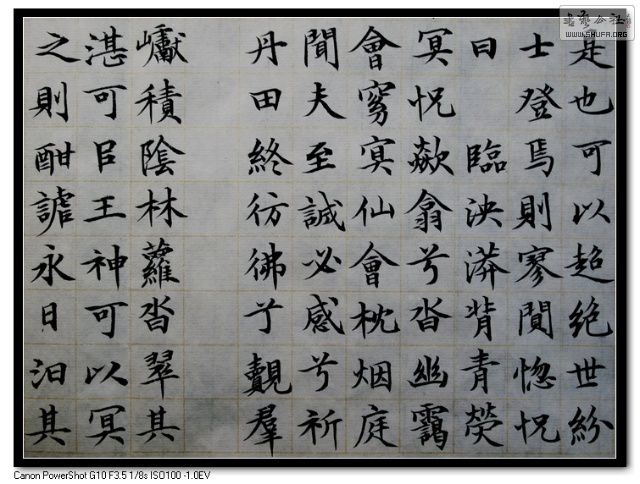 是也可以超絕世紛
士登焉則寥閴惚怳
曰 臨泱漭背青熒
冥怳歘翕兮沓幽靄
會窅冥仙會枕烟庭
聞夫至誠必感兮祈
丹田終彷彿兮覯羣
巘積陰林蘿沓翠其
湛可臣王神可以冥
之則酣謔永日汩其
書藝公社
WWW.SHUFA.ORG
Canon PowerShot G10 F3.5 1/8s ISO100 -1.0EV